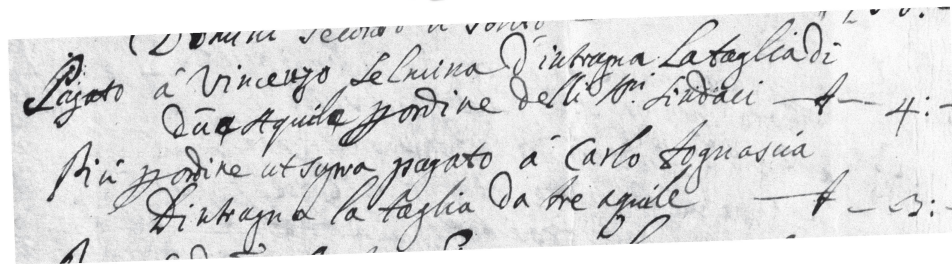 Domini secondo il solito
Pagato à Vincenzo Selmina d'intragna La taglia di
due Aquile p ordine delli SS.ri Sindaci — £ — 4: -
Più p ordine ut supra pagato à Carlo Tognascia
Dintragna la taglia da tre aquile — £ — 3: -